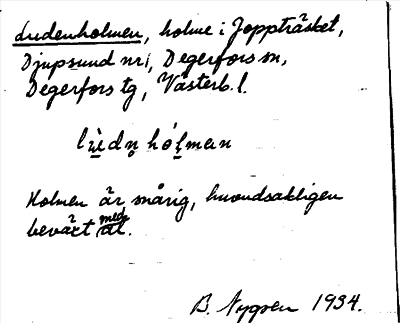 Ludenholmen, holme i Joppträsket,
Djupsund nr 1, Degerfors sn,
Degerfors tg, Västerb. l.
lùdṇ hólman
Holmen är snårig, huvudsakligen
beväxt med al.
B. Nygren 1934.